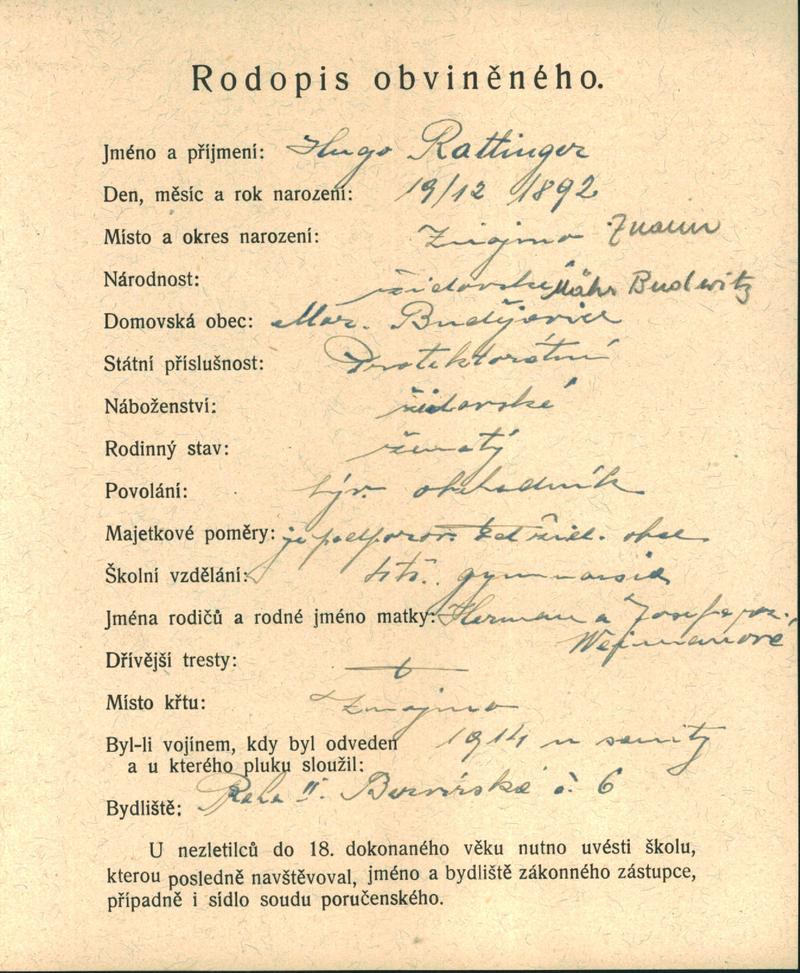 Rodopis obviněného.
Jméno a příjmení: Hugo Rattinger
Den, měsíc a rok narození: 19/12 1892
Místo a okres narození: Znojmo Znaim
Národnost: židovská Mähr Budwitz
Domovská obec: Mor. Budějovice
Státní příslušnost: Protektorátní
Náboženství: židovské
Rodinný stav: ženatý
Povolání: býv. obchodník
Majetkové poměry: je podporov. žid. obcí
Školní vzdělání: gymnasia
Jména rodičů a rodné jméno matky: Herman a Josefa roz.
Wejmanové
Dřívější tresty:
Místo křtu: Znojmo
Byl-li vojínem, kdy byl odveden 1914 u sanity
a u kterého pluku sloužil:
Bydliště: Praha II. č. 6
U nezletilců do 18. dokonaného věku nutno uvésti školu,
kterou posledně navštěvoval, jméno a bydliště zákonného zástupce,
případně i sídlo soudu poručenského.